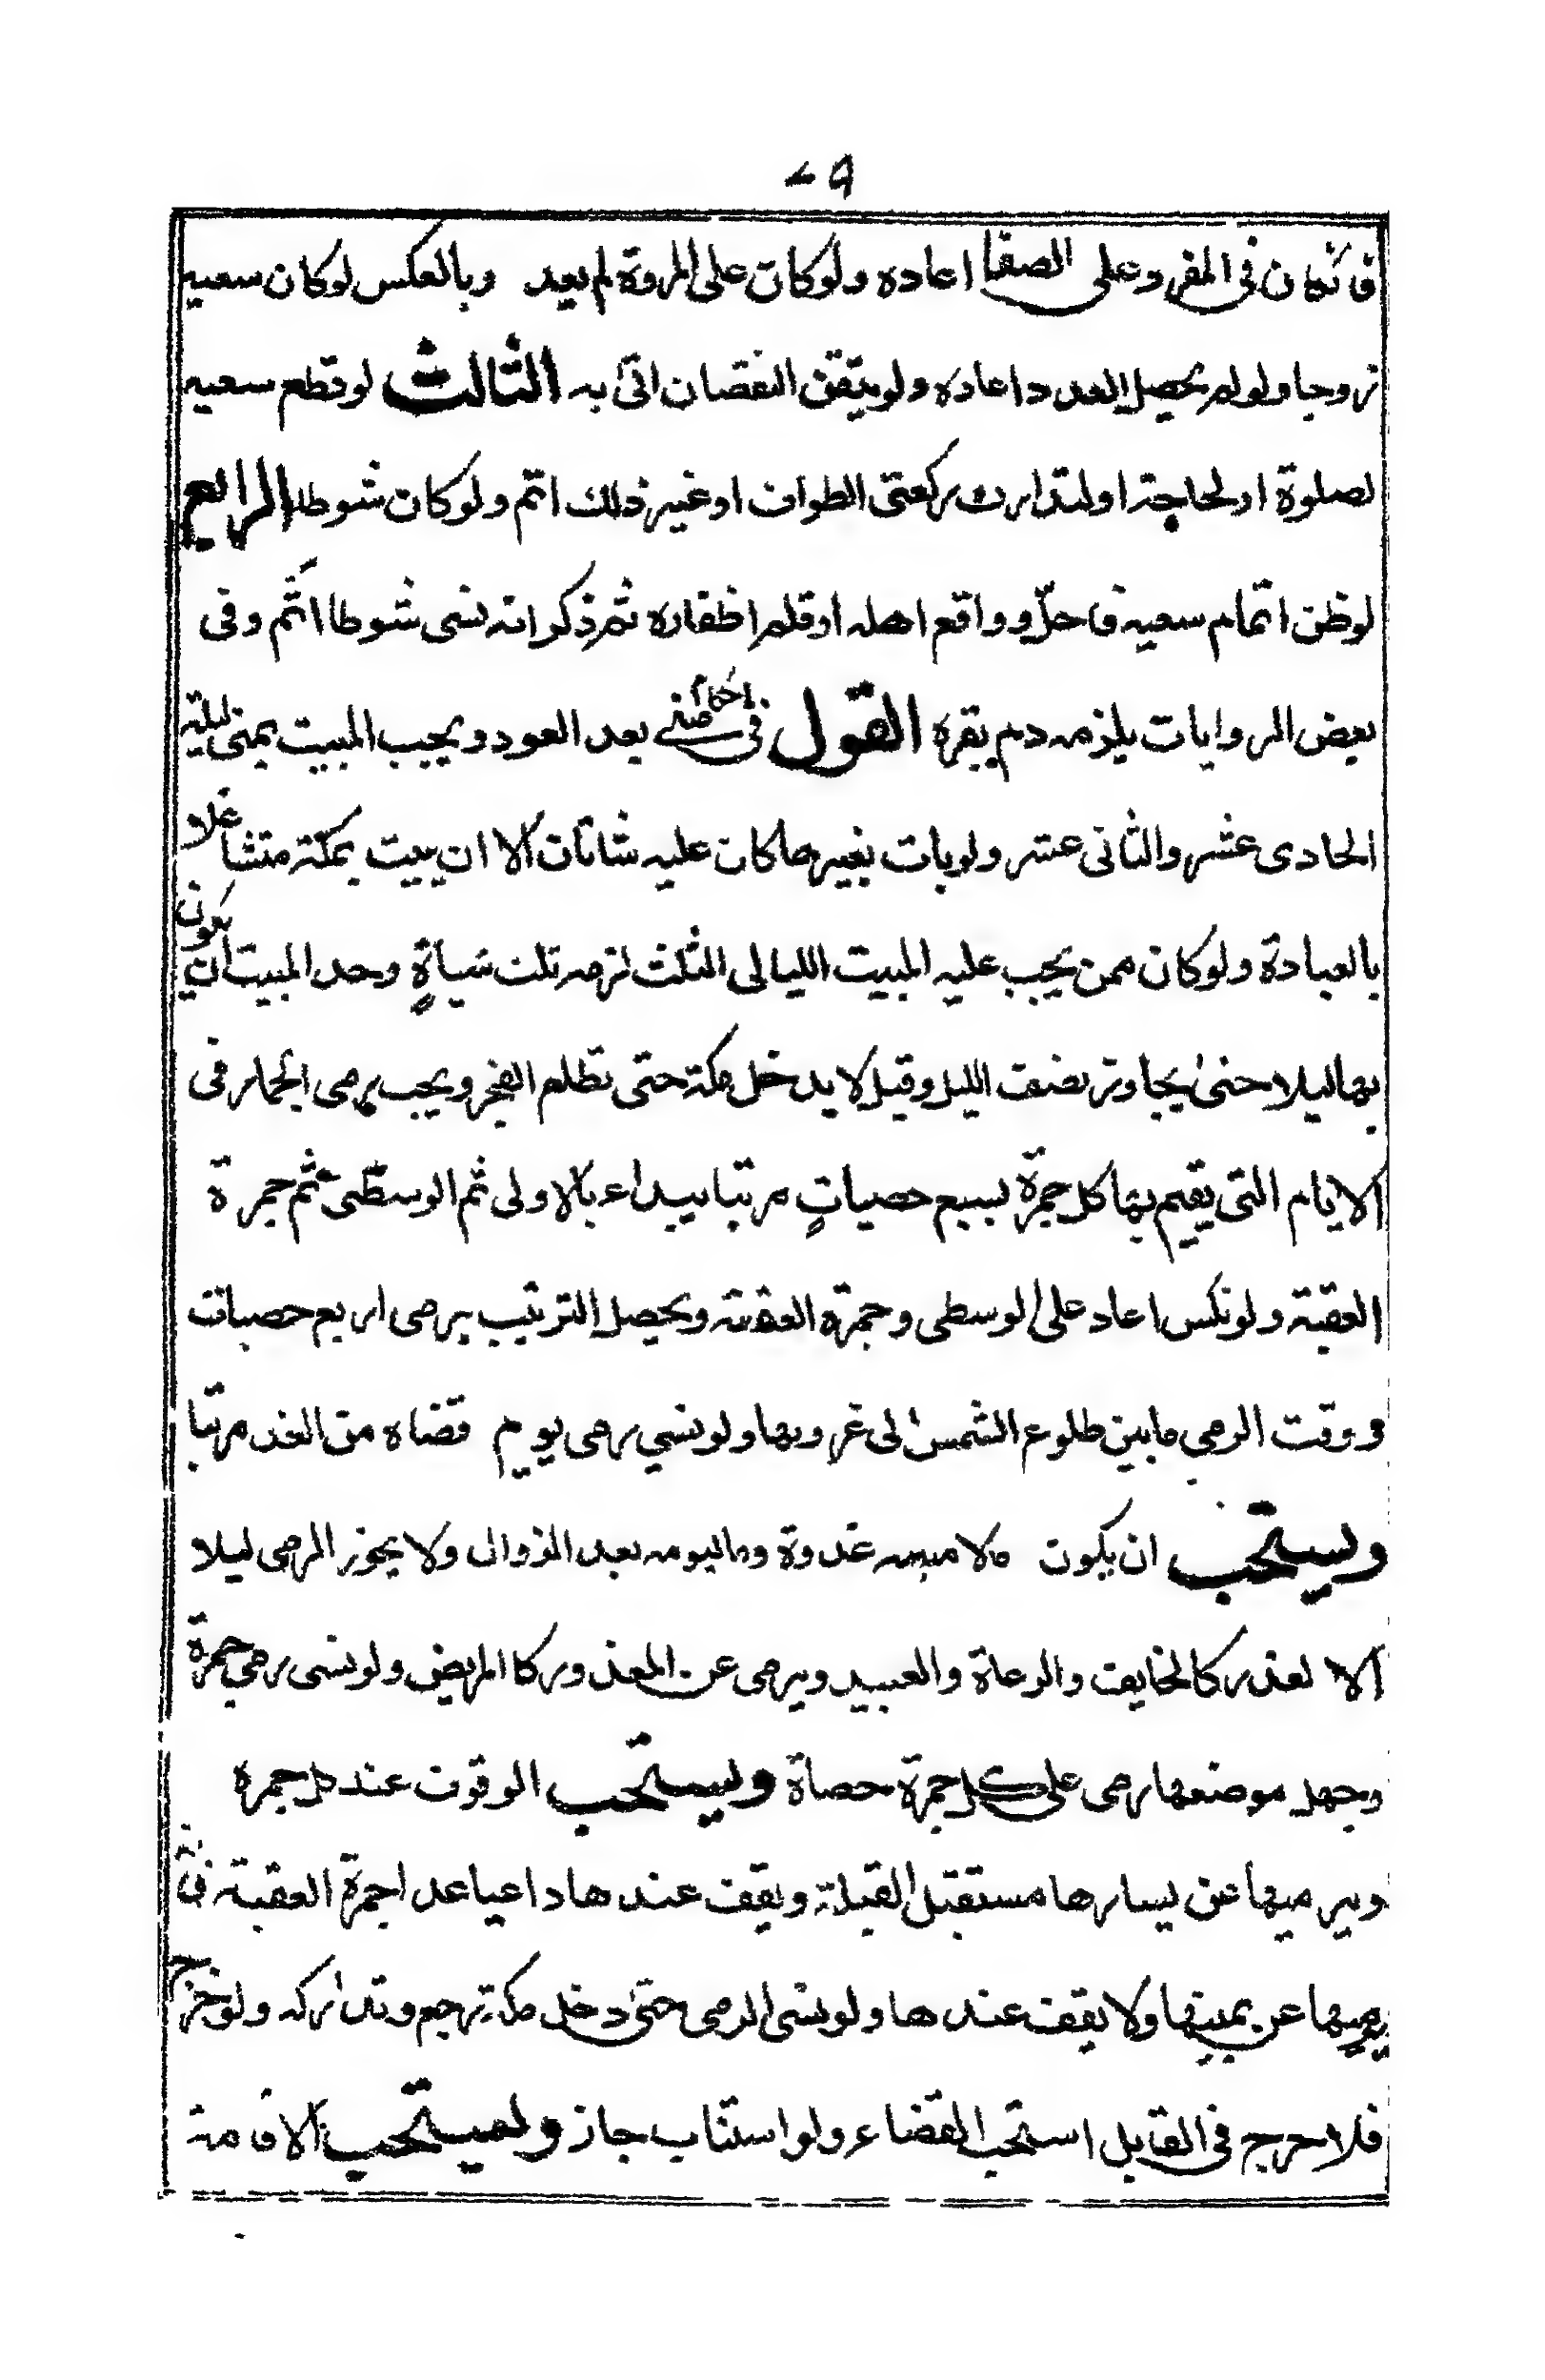 ٧٩
فان كان فى المفرد وعلى الصفا اعاده ولو كان على المروة لم يعد وبالعكس لو كان سعيه
زوجا ولو لم يحصل العدد اعاده ولو يتقن النقصان اتى به الثالث لو قطع سعيه
لصلوة او لحاجة او لتدارك ركعتى الطواف او غير ذلك اتم ولو كان شوطا الرابع
لو ظن اتمام سعيه فاحلّ وواقع اهله او قلم اظفاره ثم ذكر انه نسى شوطا اتّم وفى
بعض الروايات يلزمه دم بقرة القول فى احكام منى بعد العود ويجب المبيت بمنى ليلة
الحادى عشر والثانى عشر ولو بات بغيرها كان عليه شاتان الا ان يبيت بمكة متشاغلا
بالعبادة ولو كان ممن يجب عليه المبيت الليالى الثلث لزمه ثلث شياةٍ وحد المبيت ان يكون
بها ليلا حتىٰ يجاوز نصف الليل وقيل لا يدخل مكة حتى تطلع الفجر ويجب رمى الجمار فى
الايام التى يقيم بها كل جمرة بسبع حصياتٍ مرتبا يبداء بالاولى ثم الوسطى ثم جمرة
العقبة ولو نكس اعاد على الوسطى وجمرة العقبة ويحصل الترتيب برمى اربع حصيات
ووقت الرمى ما بين طلوع الشمس الى غروبها ولو نسي رمى يوم قضاه من الغد مرتبا
ويستحب ان يكون ما لامسه غدوة وما ليومه بعد الزوال ولا يجوز الرمى ليلا
الا لعذر كالخايف والرعاة والعبيد ويرمى عن المعذور كا المريض ولو نسى رمي جمرة
وجهل موضعها رمى على كل جمرة حصاة ويستحب الوقوف عند كل جمرة
ويرميها عن يسارها مستقبل القبلة ويقف عندها داعيا عدا جمرة العقبة فانه
يرميها عن يمينها ولا يقف عندها ولو نسى الرمى حتىٰ دخل مكة رجع وتداركه ولو خرج
فلا حرج فى القابل استحب القضاء ولو استناب جاز ويستحب الاقامة